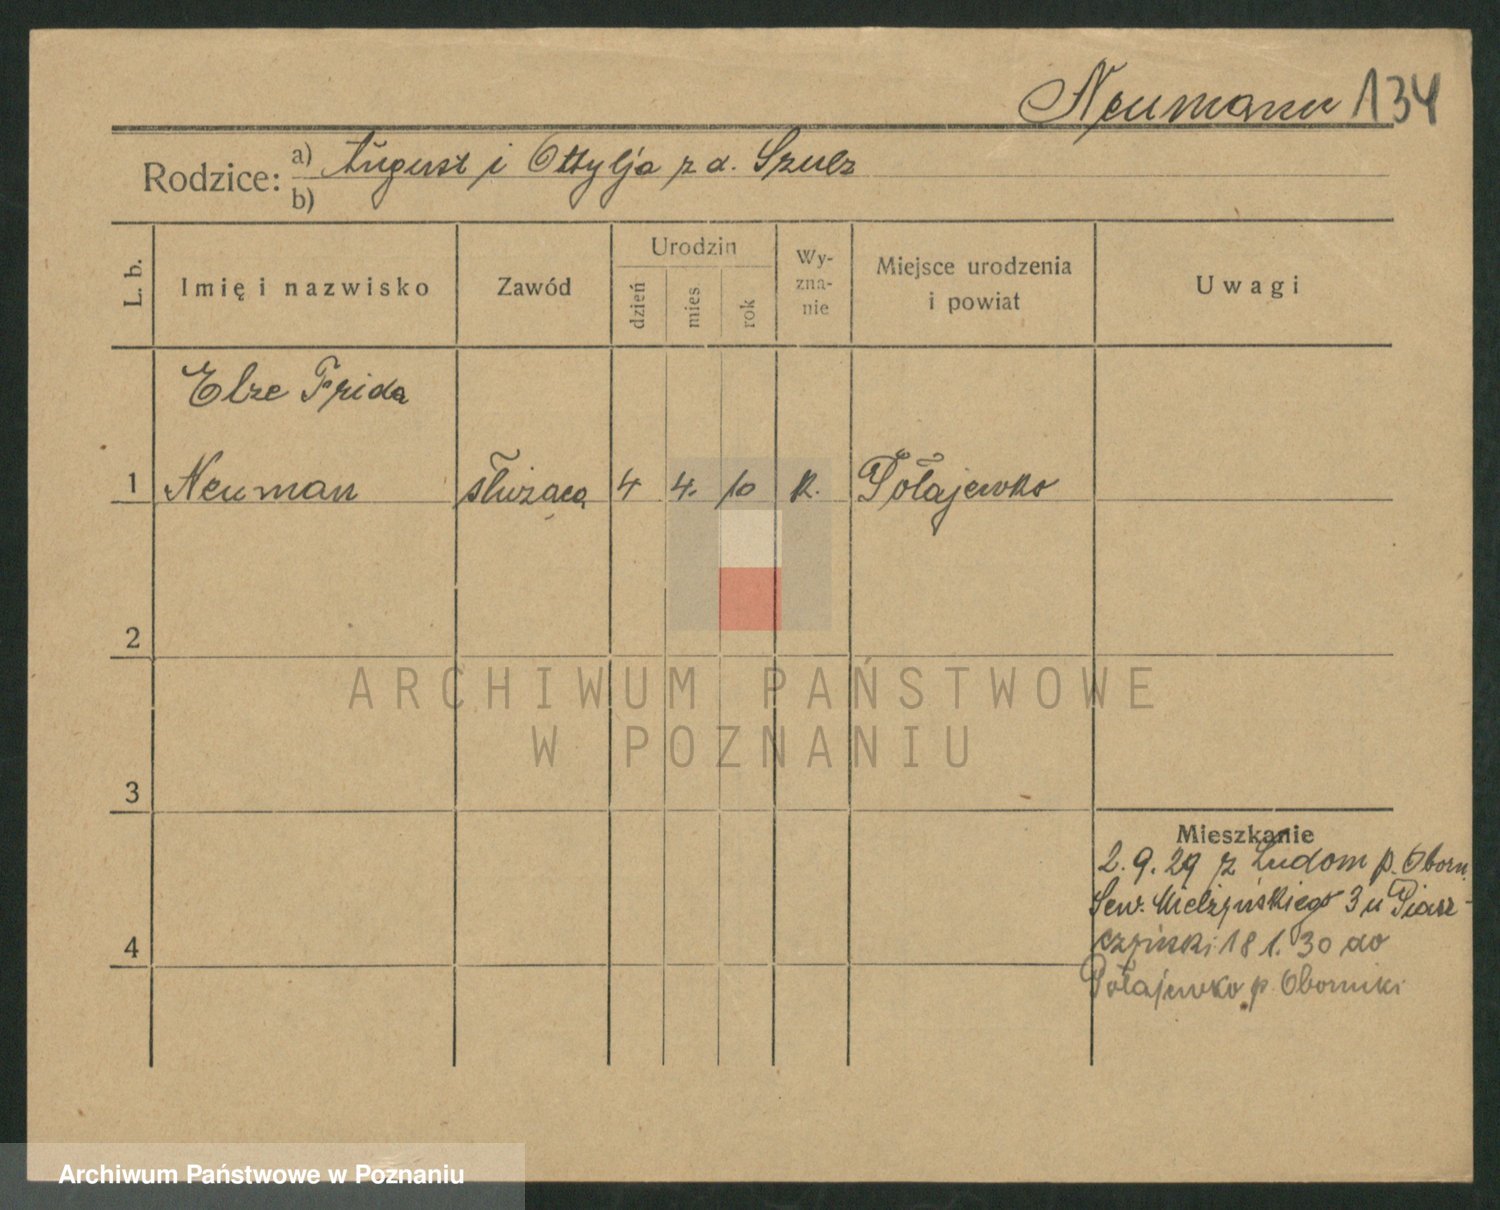 Neumann 134
Rodzice: a) August i Ottylja z d. Szulz
b)
L. b. Imię i nazwisko Zawód Urodzin dzień mies rok Wy-zna-nie Miejsce urodzenia i powiat Uwagi
Elze Frida
1 Neuman służąca 4 4. 10 k. Połajewko
2
3
4
Mieszkanie
2.9.29 z Ludom p. Oborn.
Sew. Mielżyńskiego 3 u Piasz-
czyński 18 1. 30 do
Połajewko p. Oborniki
ARCHIWUM PAŃSTWOWE
W POZNANIU
Archiwum Państwowe w Poznaniu